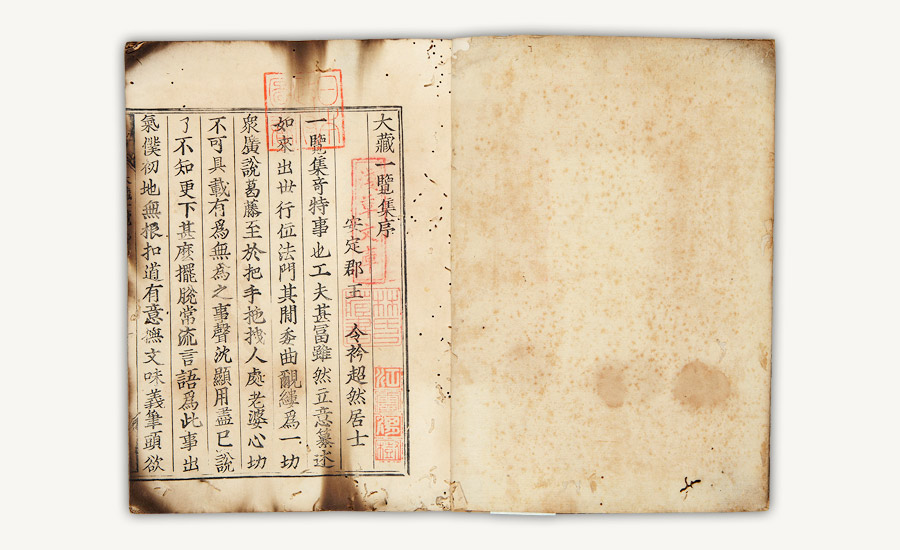 大藏一覽集序
安定郡王 令衿超然居士
一覽集奇特事也工夫甚冨雖然立意纂述
如來出世行位法門其間委曲覼縷爲一切
衆廣說葛藤至於把手拖拽人處老婆心切
不可具載有爲無爲之事聲沈顯用盡已說
了不知更下甚麽擺脫常流言語爲此事出
氣僕初地無根扣道有意撫文味義筆頭欲
日本
淺草文庫
林氏
江雲渭樹